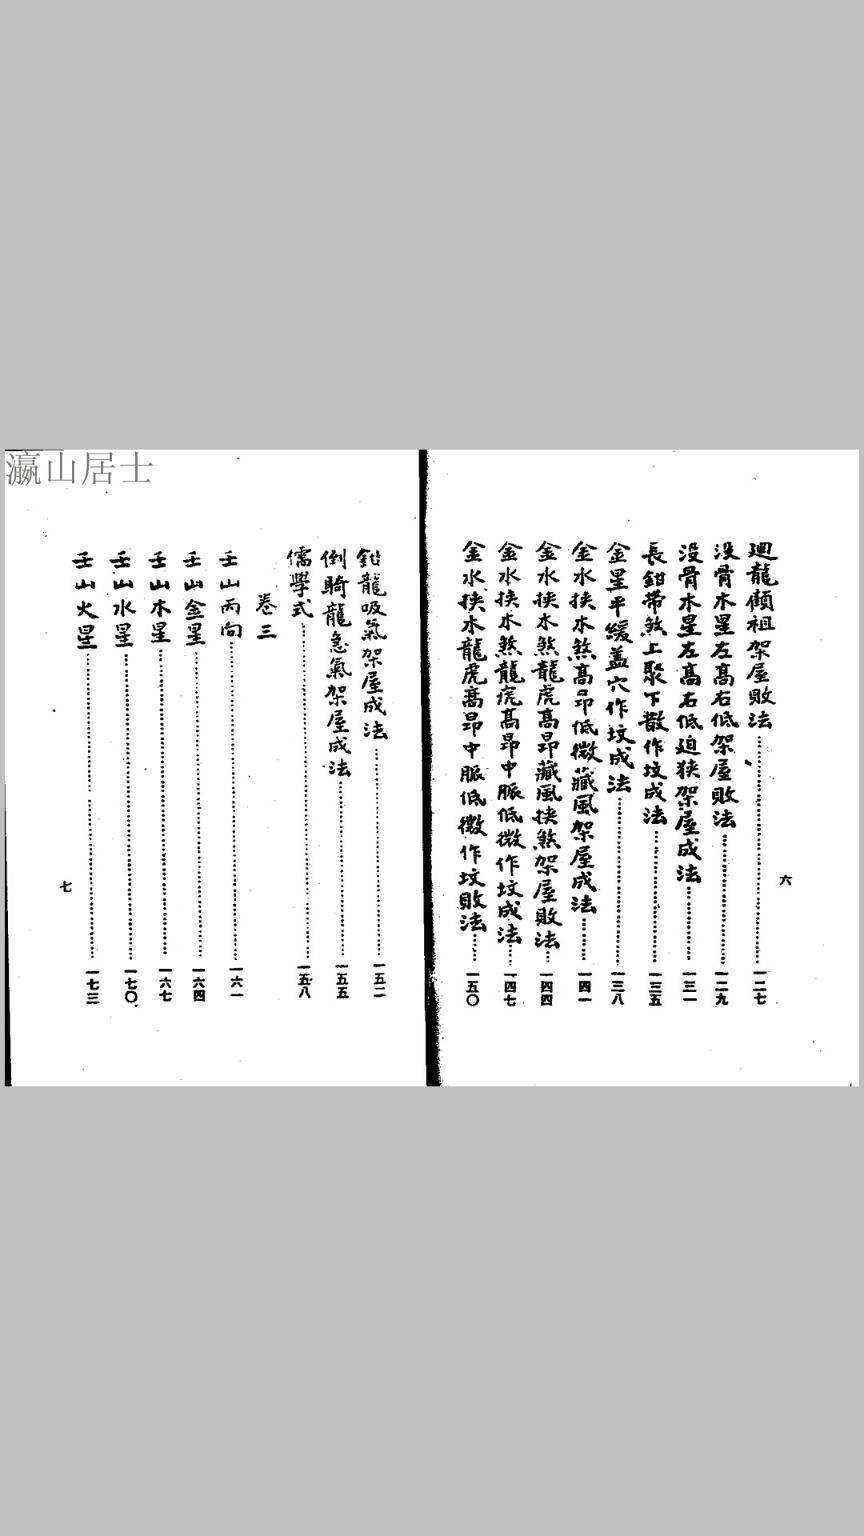 瀛山居士
迴龍顧祖架屋敗法……一二七
沒骨木星左高右低架屋敗法……一二九
沒骨木星左高右低迫狹架屋成法……一三一
長鉗帶煞上聚下散作坟成法……一三五
金星平緩盖穴作坟成法……一三八
金水挟木煞高昂低微藏風架屋成法……一四一
金水挟木煞龍虎高昂藏風挟煞架屋敗法……一四四
金水挟木煞龍虎高昂中脈低微作坟成法……一四七
金水挟木龍虎高昂中脈低微作坟敗法……一五〇
六
鉗龍吸氣架屋成法……一五二
倒騎龍急氣架屋成法……一五五
儒學式……一五八
卷三
壬山丙向……一六一
壬山金星……一六四
壬山木星……一六七
壬山水星……一七〇
壬山火星……一七三
七